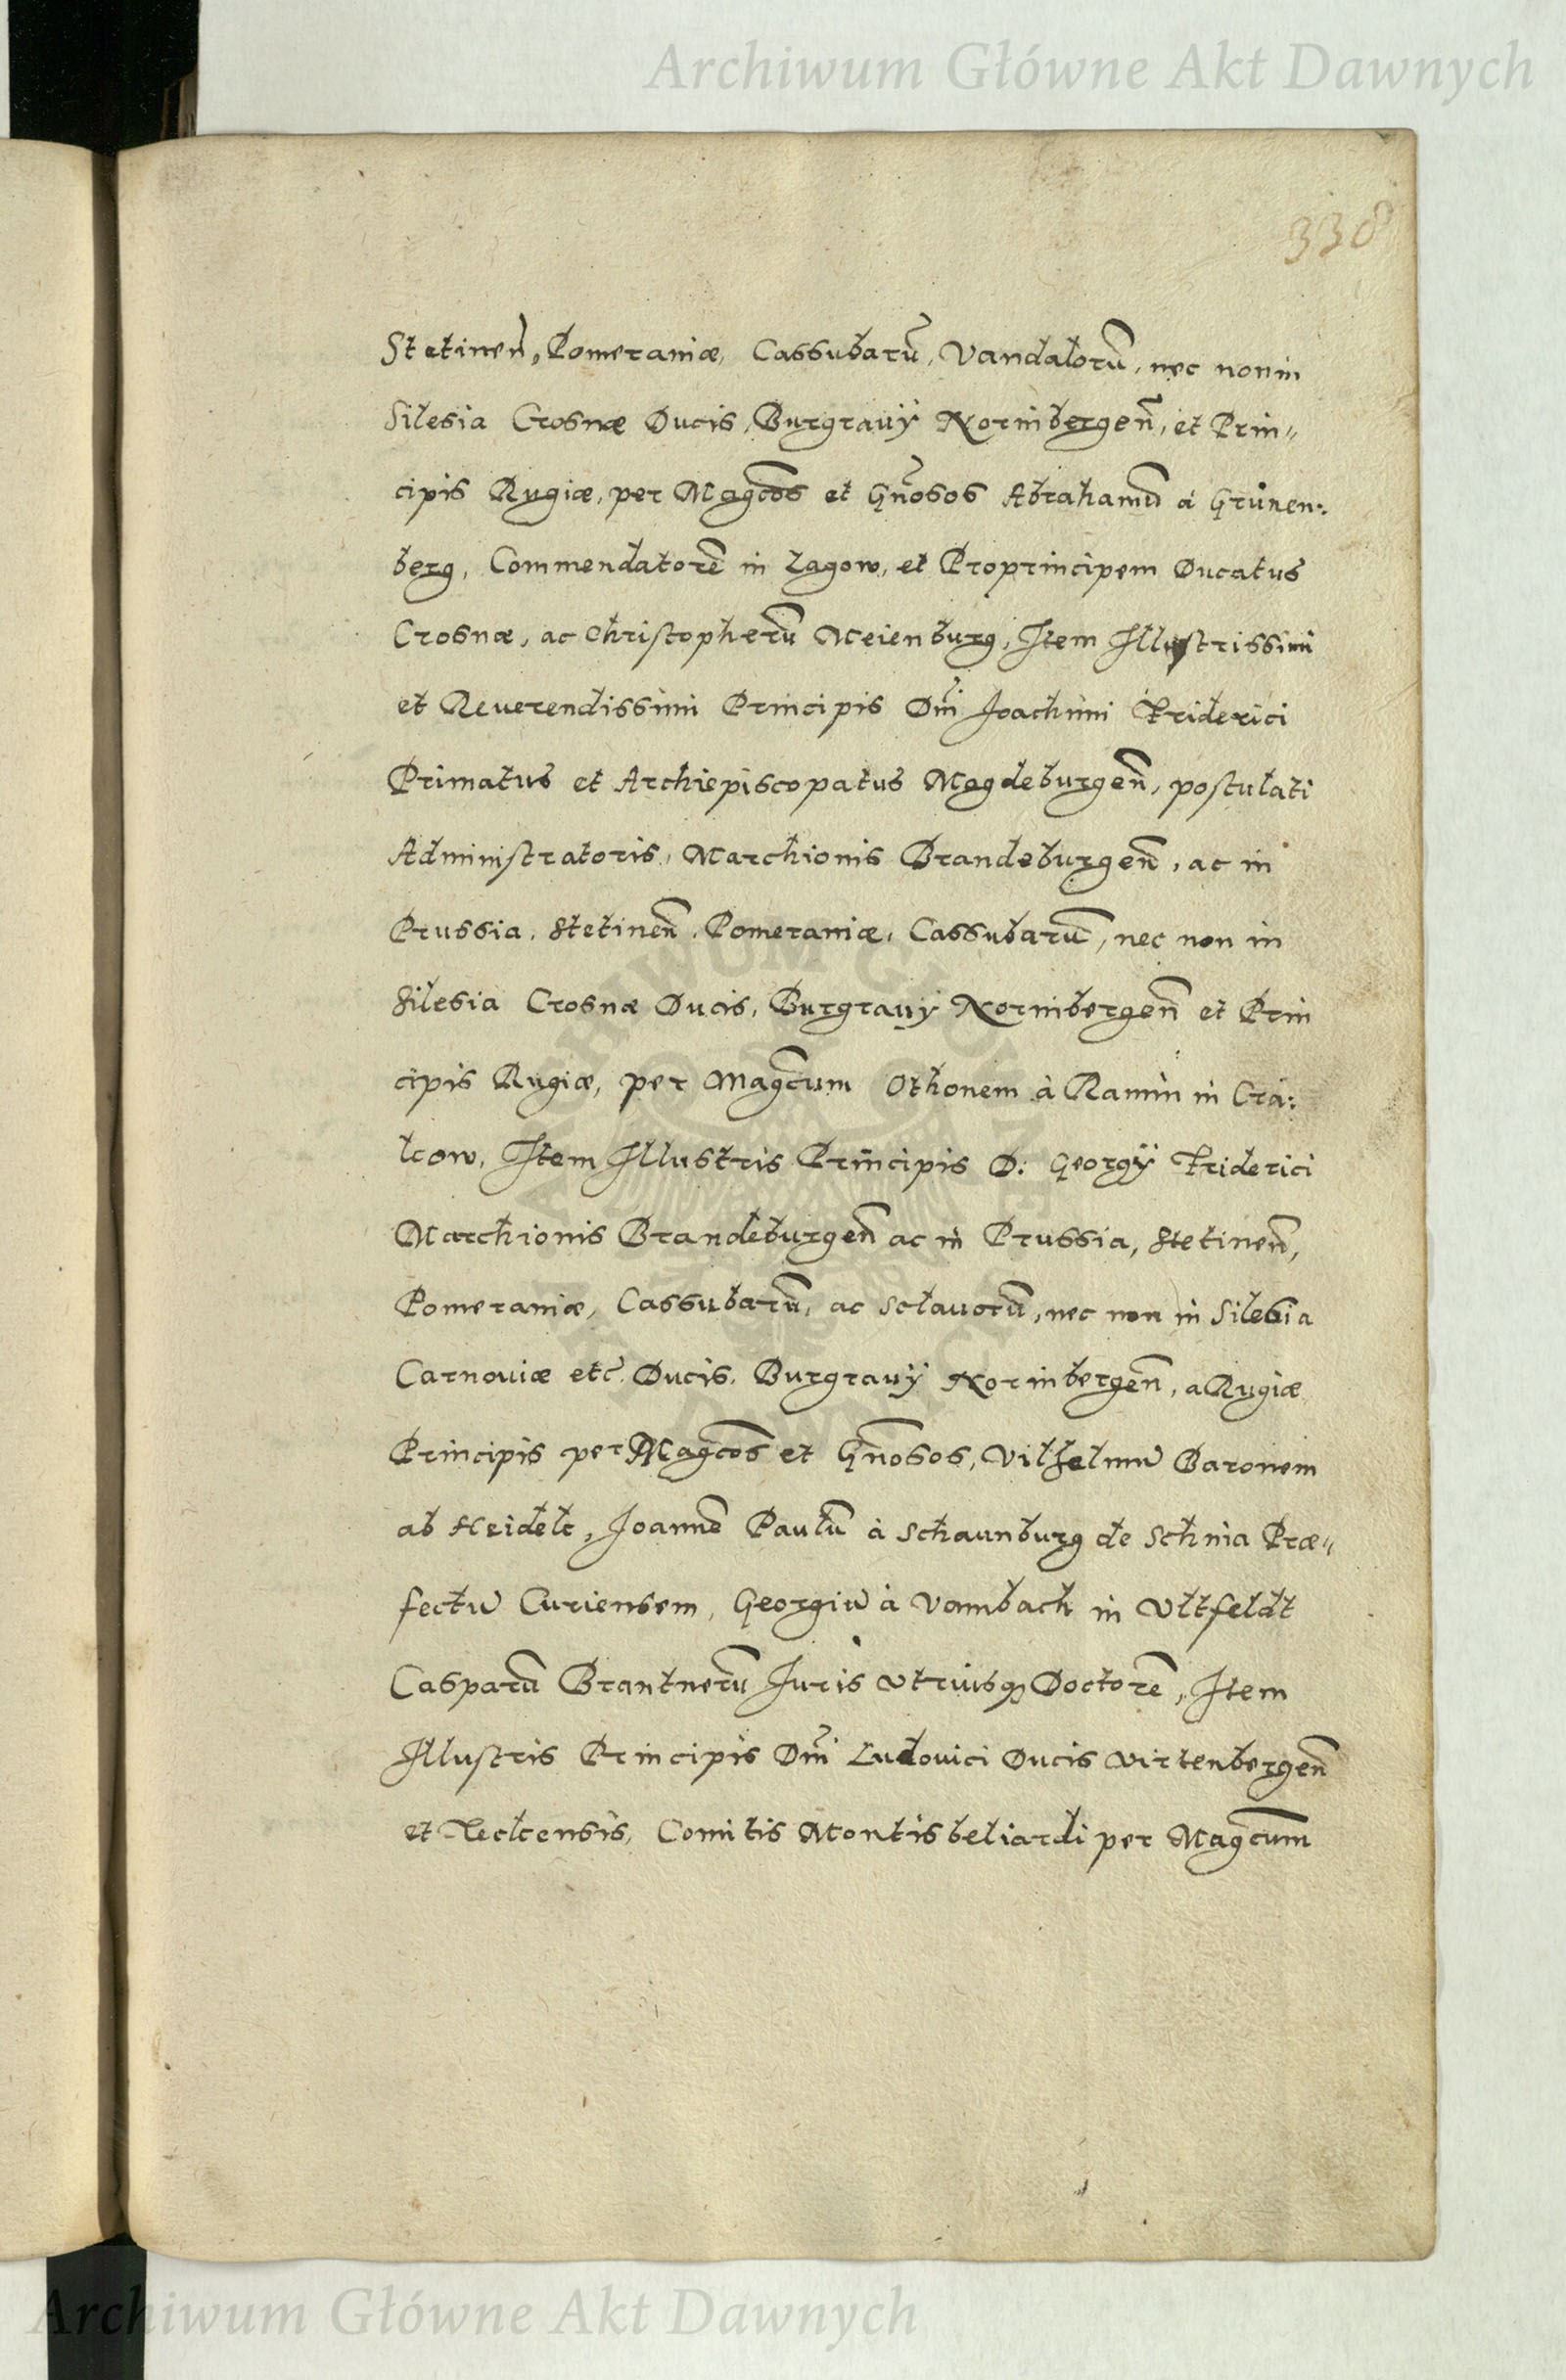 Archiwum Główne Akt Dawnych
338
Stetinen̄, Pomeraniæ, Cassubarū, Vandalorū, nec non in
Silesia Crosnæ Ducis, Burgravÿ Norinbergen̄, et Prin„
cipis Rugiæ, per Mag̅cos et Gn̅osos Abrahamū à Grůnen:
berg, Commendatorē in Lagow, et Proprincipem Ducatus
Crosnæ, ac Christopherū Meienburg, Item Illustrissimi
et Reuerendissimi Principis Dn̄i Joachimi Friderici
Primatus et Archiepiscopatus Magdeburgen̄, postulati
Administratoris, Marchionis Brandeburgen̄, ac in
Prussia, Stetinen̄. Pomeraniæ, Cassubarū, nec non in
Silesia Crosnæ Ducis, Burgrauÿ Norinbergen̄ et Prin
cipis Rugiæ, per Mag̅cum Othonem à Ramin in Cra:
kow, Item Illustris Principis D: Georgÿ Friderici
Marchionis Brandeburgen̄ ac in Prussia, Stetinen̄,
Pomeraniæ, Cassubarū, ac Sclauorū, nec non in Silesia
Carnouiæ etc̄. Ducis, Burgrauÿ Norinbergen̄, a Rugiæ
Principis per Mag̅cos et Gn̅osos, Vilhelmū Baronem
ab Heidek, Joannē Paulū à Schaunburg de Schnia Præ„
fectū Curiensem, Georgiū à Vambach in Vltfeldt
Casparū Brantnerū Juris Vtriusq₃ Doctorē, Item
Illustris Principis Dn̄i Ludouici Ducis Virtenbergen̄
et Teckensis, Comitis Montisbeliardi per Mag̅cum
Archiwum Główne Akt Dawnych